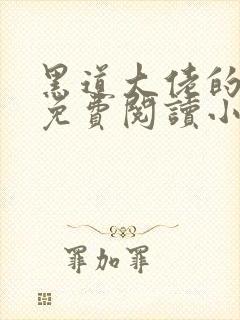 黑道大佬的
免費閱讀小
罪加罪